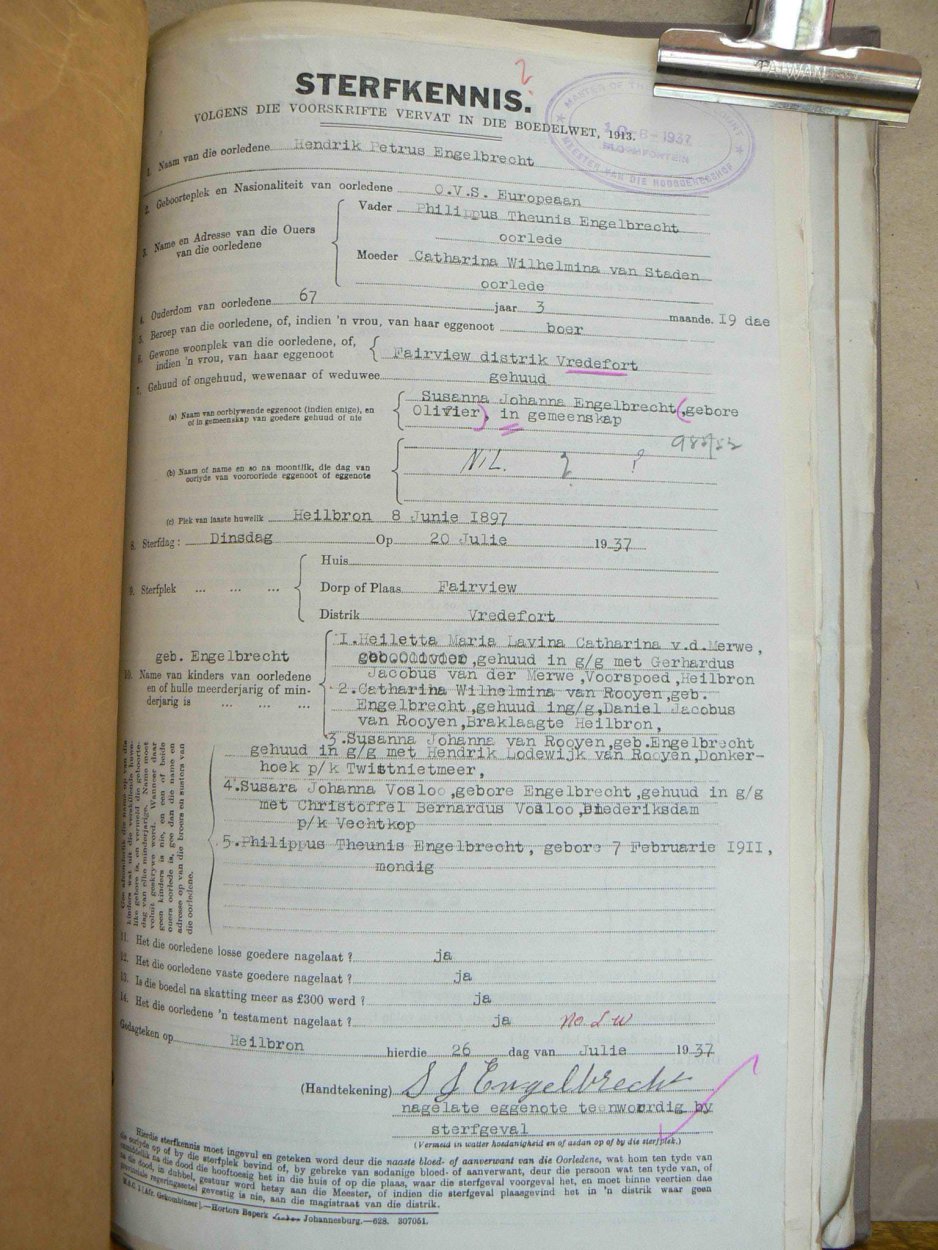 TAIWAN
2
STERFKENNIS.
VOLGENS DIE VOORSKRIFTE VERVAT IN DIE BOEDELWET, 1913.
MASTER OF THE
-8-1937
BLOEMFONTEIN
MEESTER VAN DIE HOOGGEREGSHOF
1. Naam van die oorledene Hendrik Petrus Engelbrecht
2. Geboorteplek en Nasionaliteit van oorledene O.V.S. Europeaan
3. Name en Adresse van die Ouers van die oorledene
Vader Philippus Theunis Engelbrecht
oorlede
Moeder Catharina Wilhelmina van Staden
oorlede
4. Ouderdom van oorledene 67 jaar 3 maande. 19 dae
5. Beroep van die oorledene, of, indien 'n vrou, van haar eggenoot boer
6. Gewone woonplek van die oorledene, of,
indien 'n vrou, van haar eggenoot Fairview distrik Vredefort
7. Gehuud of ongehuud, wewenaar of weduwee gehuud
Susanna Johanna Engelbrecht (,gebore
(a) Naam van oorblywende eggenoot (indien enige), en
of in gemeenskap van goedere gehuud of nie
Olivier), in gemeenskap
(b) Naam of name en so na moontlik, die dag van
oorlyde van vooroorlede eggenoot of eggenote
NiL. ?
(c) Plek van laaste huwelik Heilbron 8 Junie 1897
8. Sterfdag: Dinsdag Op 20 Julie 1937
9. Sterfplek ... ... ...
Huis
Dorp of Plaas Fairview
Distrik Vredefort
1.Heiletta Maria Lavina Catharina v.d.Merwe,
geb. Engelbrecht
,gehuud in g/g met Gerhardus
Jacobus van der Merwe ,Voorspoed ,Heilbron
10. Name van kinders van oorledene
en of hulle meerderjarig of min-
derjarig is ... ... ...
2.Catharina Wilhelmina van Rooyen,geb.
Engelbrecht,gehuud ing/g,Daniel Jacobus
van Rooyen,Braklaagte Heilbron,
3.Susanna Johanna van Rooyen,geb.Engelbrecht
gehuud in g/g met Hendrik Lodewijk van Rooyen,Donker-
hoek p/k Twistnietmeer,
4.Susara Johanna Vosloo,gebore Engelbrecht,gehuud in g/g
met Christoffel Bernardus Vosloo,Diederiksdam
p/k Vechtkop
5.Philippus Theunis Engelbrecht, gebore 7 Februarie 1911,
mondig
11. Het die oorledene losse goedere nagelaat? ja
12. Het die oorledene vaste goedere nagelaat? ja
13. Is die boedel na skatting meer as £300 werd? ja
14. Het die oorledene 'n testament nagelaat? ja no L W
Gedagteken op Heilbron hierdie 26 dag van Julie 1937
(Handtekening) S J Engelbrecht
nagelate eggenote teenwoordig by
sterfgeval
(Vermeld in watter hoedanigheid en of asdan op of by die sterfplek.)
Hierdie sterfkennis moet ingevul en geteken word deur die naaste bloed- of aanverwant van die Oorledene, wat hom ten tyde van
die oorlyde op of by die sterfplek bevind of, by gebreke van sodanige bloed- of aanverwant, deur die persoon wat ten tyde van, of
onmiddellik na die dood die hooftoesig het in die huis of op die plaas, waar die sterfgeval voorgeval het, en moet binne veertien dae
na die dood, in dubbel, gestuur word hetsy aan die Meester, of indien die sterfgeval plaasgevind het in 'n distrik waar geen
provinsiale regeringsetel gevestig is nie, aan die magistraat van die distrik.
M.H.C. 1 [Afr. Gekombineer].—Hortors Beperk Johannesburg.—628. 307051.